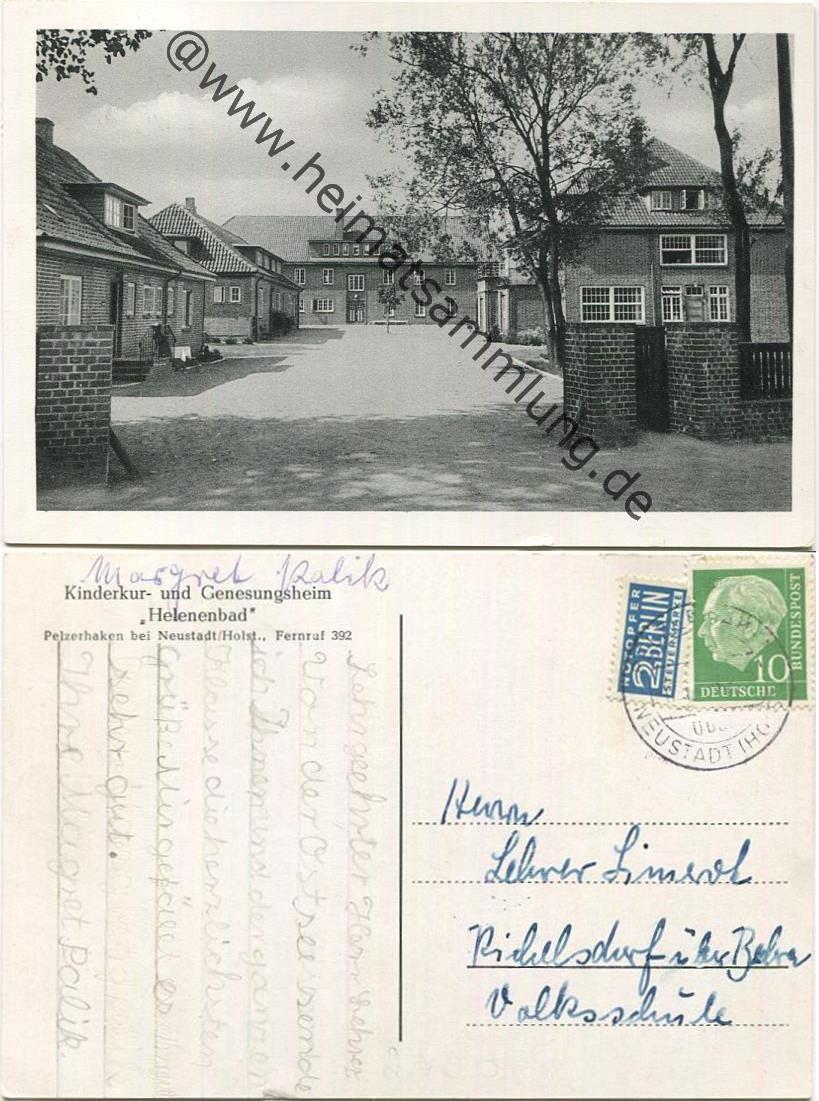 @www.heimatsammlung.de
Margret Palik
Kinderkur- und Genesungsheim
„Helenenbad"
Pelzerhaken bei Neustadt/Holst., Fernruf 392
Sehrgeehrter Herr Lehrer
Von der Ostsee sende
ich Ihnen und der ganzen
Klasse die herzlichsten
Grüße. Mir gefällt es
sehr gut.
Ihre Margret Palik.
NOTOPFER
2 BERLIN
STEUERMARKE
10
DEUTSCHE
BUNDESPOST
NEUSTADT (HO
Herrn
Lehrer
Richelsdorf über Bebra
Volksschule